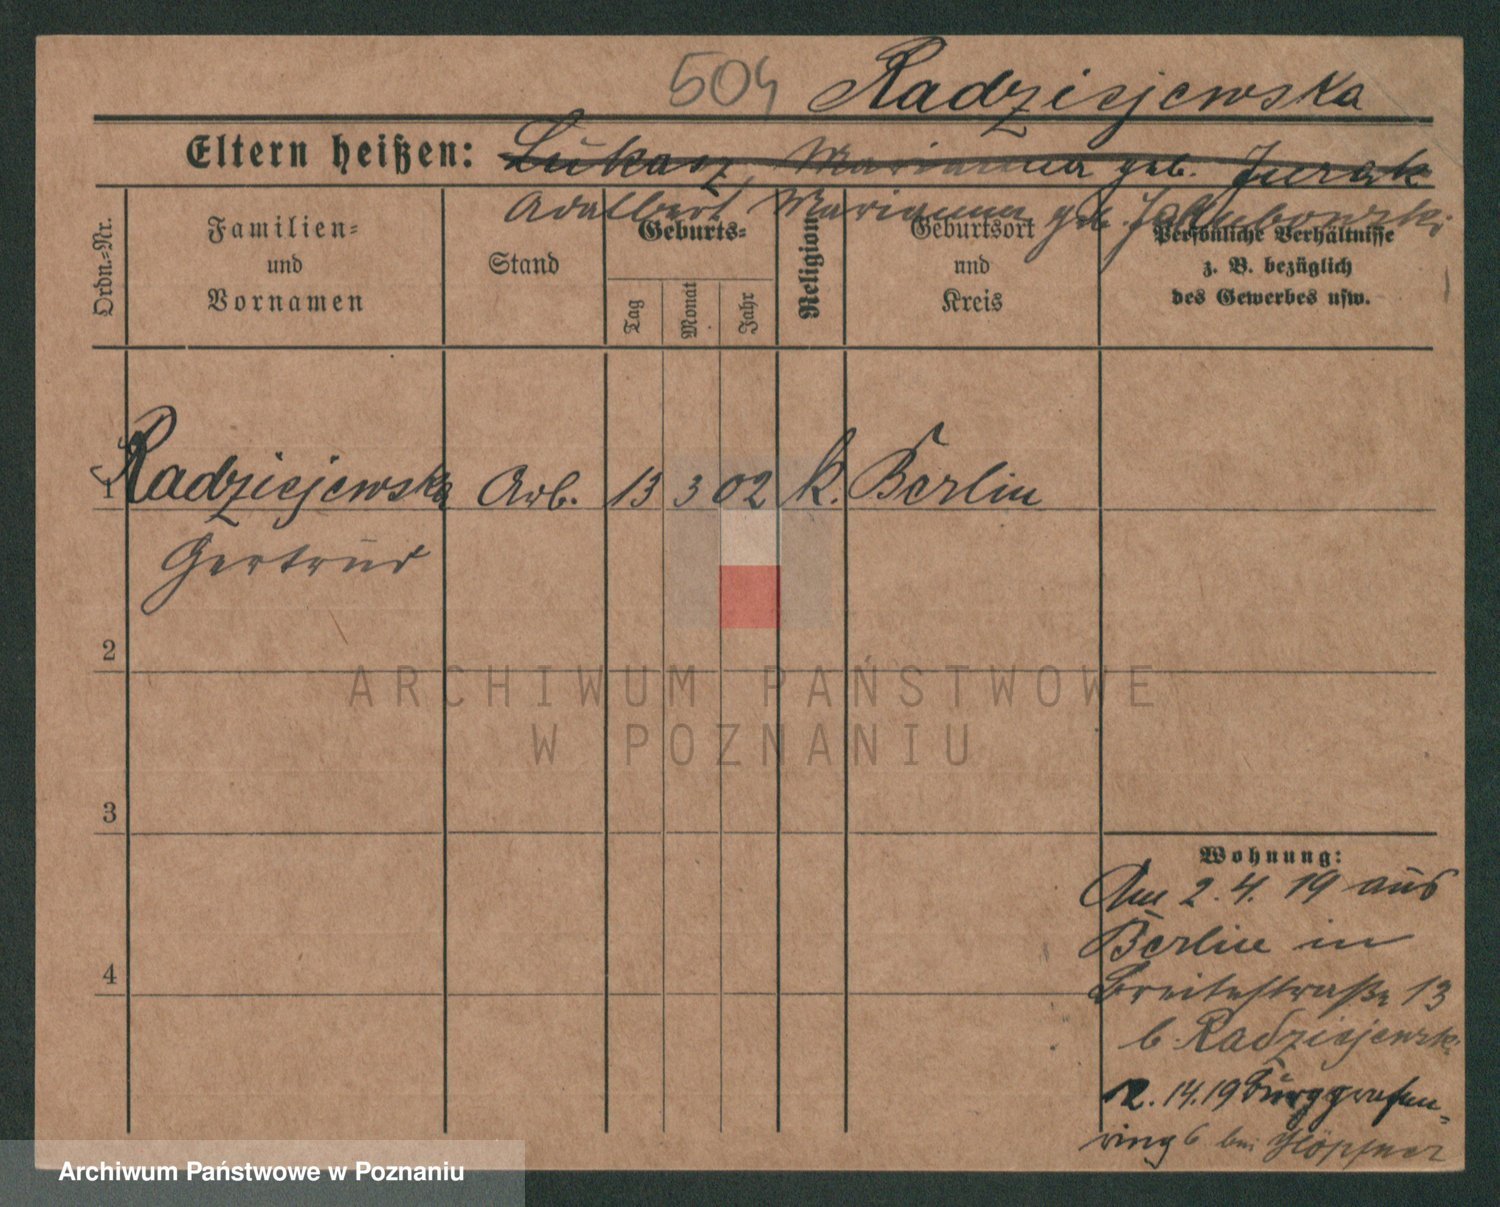 504 Radziejewska
Eltern heißen: Lukasz, Marianna geb. Jurak
Adalbert Marianna geb. Jakubowski
Ordn.-Nr.
Familien-
und
Vornamen
Stand
Geburts-
Tag
Monat
Jahr
Religion
Geburtsort
und
Kreis
Persönliche Verhältnisse
z. B. bezüglich
des Gewerbes usw.
1 Radziejewska Arb. 13 3 02 k. Berlin
Gertrud
2
ARCHIWUM PAŃSTWOWE
W POZNANIU
3
4
Wohnung:
Am 2.4.19 aus
Berlin in
Breitestraße 13
b. Radziejewsk
14.19 Burggrafen-
ring 6 bei
Archiwum Państwowe w Poznaniu